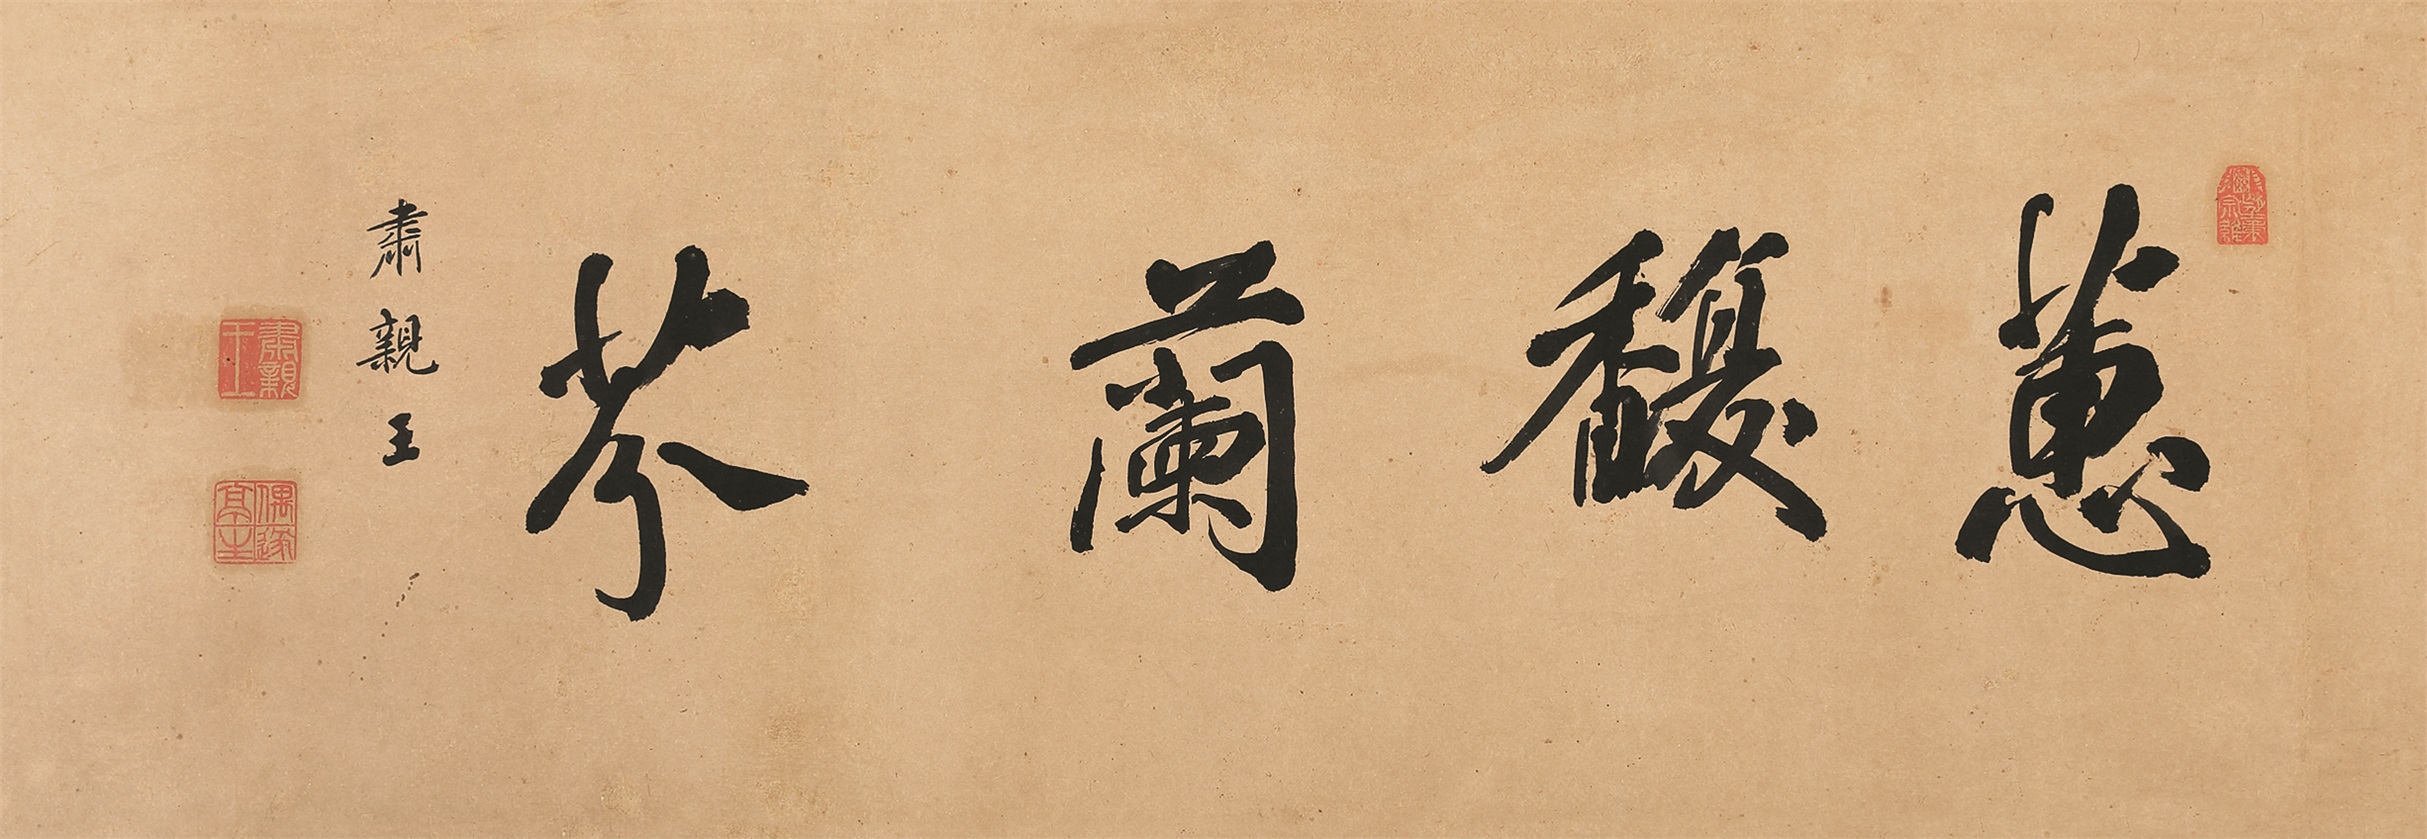 蕙馥蘭芬
肅親王
肅親王
偶遂亭主